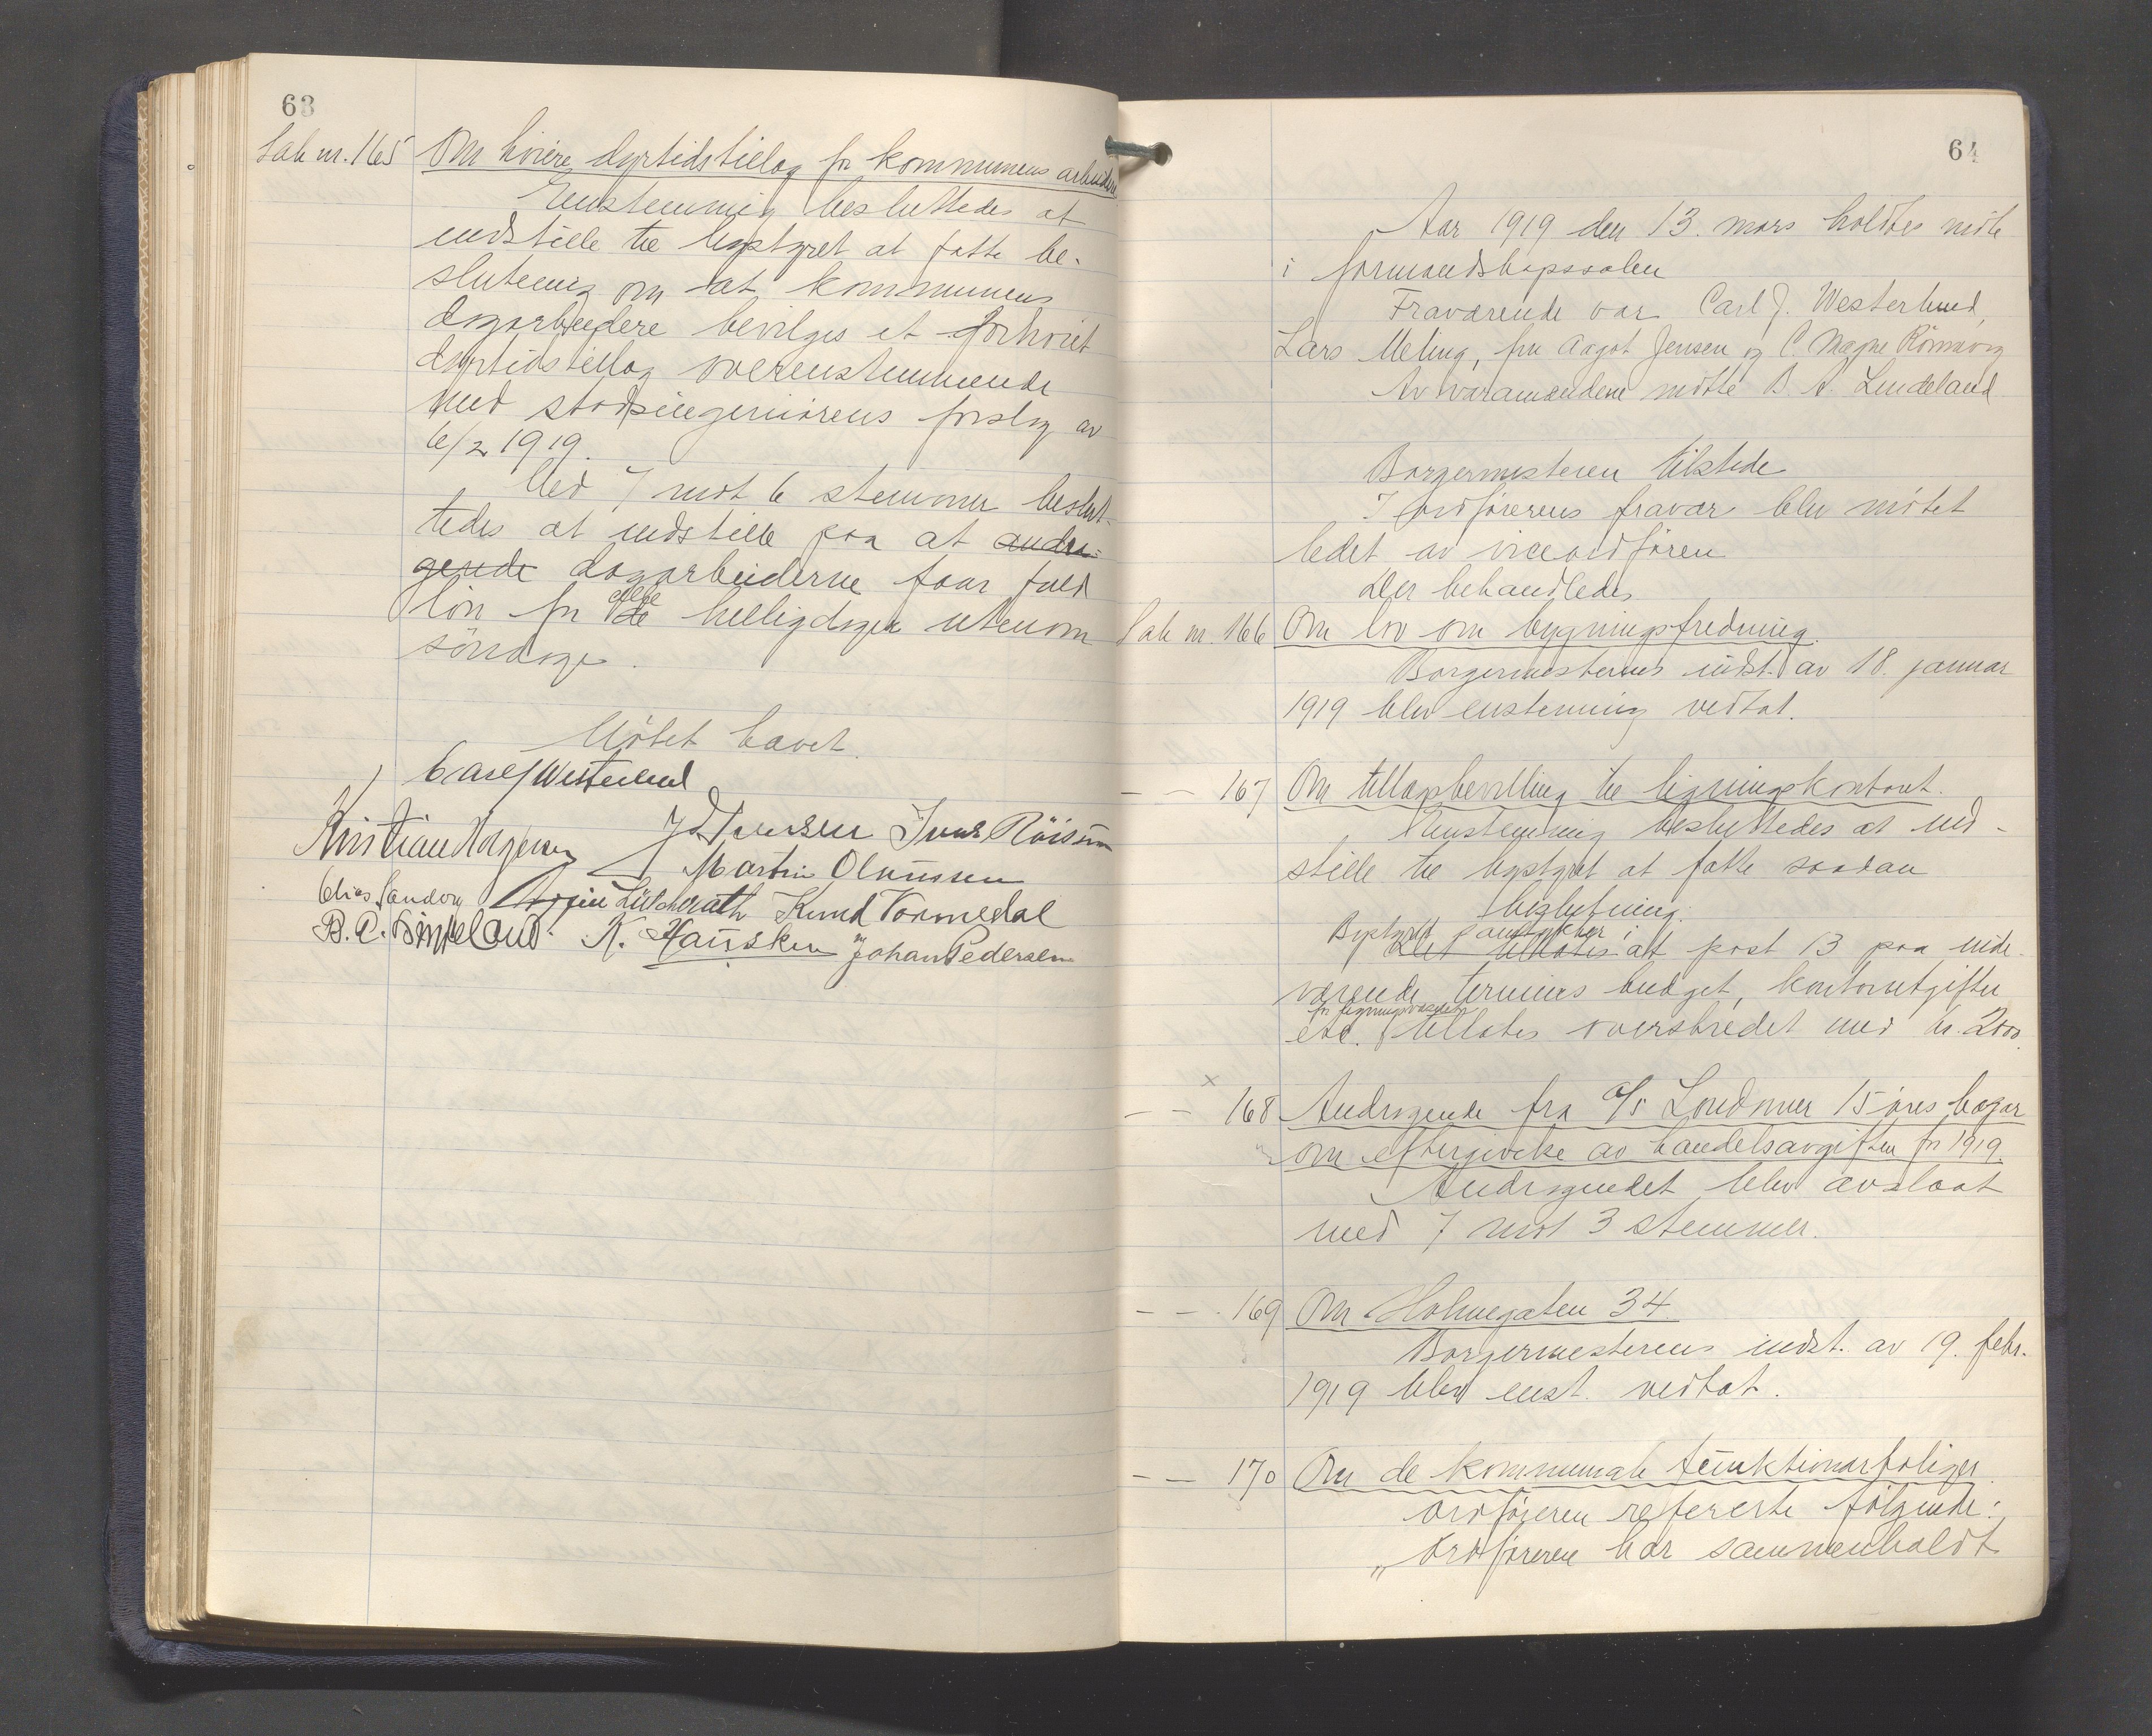 63
Sak nr. 165 Om høiere dyrtidstillæg for kommunens arbeidere
Enstemmig besluttedes at
indstille til bystyret at fatte be-
slutning om at kommunens
dagarbeidere bevilges et forhøiet
dyrtidstillæg overenstemmende
med stadsingeniørens forslag av
6/2 1919.
Med 7 mot 6 stemmer beslut-
tedes at indstille paa at andra-
gende dagarbeiderne faar fuld
løn for de alle helligdager utenom
søndage.
Møtet hævet.
Carl J Westerlund
J. Iversen Jens Röisum
Martin Olaussen
Knud Tormodal
K. Hausken Johan Pedersen
64
Aar 1919 den 13. mars holdtes møte
i formandskapssalen
Fraværende var Carl J. Westerlund,
Lars Meling, fru Aagot Jensen og C. Magne Rønnevig
Av varamændene møtte B. A. Lindeland
Borgermesteren tilstede
I ordførerens fravær blev møtet
ledet av viceordføren
Der behandledes
Sak nr. 166 Om lov om bygningsfredning.
Borgermesterens indst. av 18. januar
1919 blev enstemmig vedtat.
— — 167 Om tillægsbevilling til ligningskontoret.
Enstemmig besluttedes at ind-
stille til bystyret at fatte saadan
beslutning:
Bystyret samtykker i
Det tillates at post 13 paa inde-
værende termins budget, kontorutgifter
for ligningsvæsenet
etc. tillates overskredet med kr. 2000.
x
— — 168 Andragende fra A/S Londoner 15 øres bazar
om eftergivelse av handelsavgiften for 1919.
Andragendet blev avslaat
med 7 mot 3 stemmer.
— — 169 Om Holmegaten 34.
Borgermesterens indst. av 19. febr.
1919 blev enst. vedtat.
— — 170 Om de kommunale funktionærboliger.
Ordføreren refererte følgende:
„Ordføreren har sammenholdt